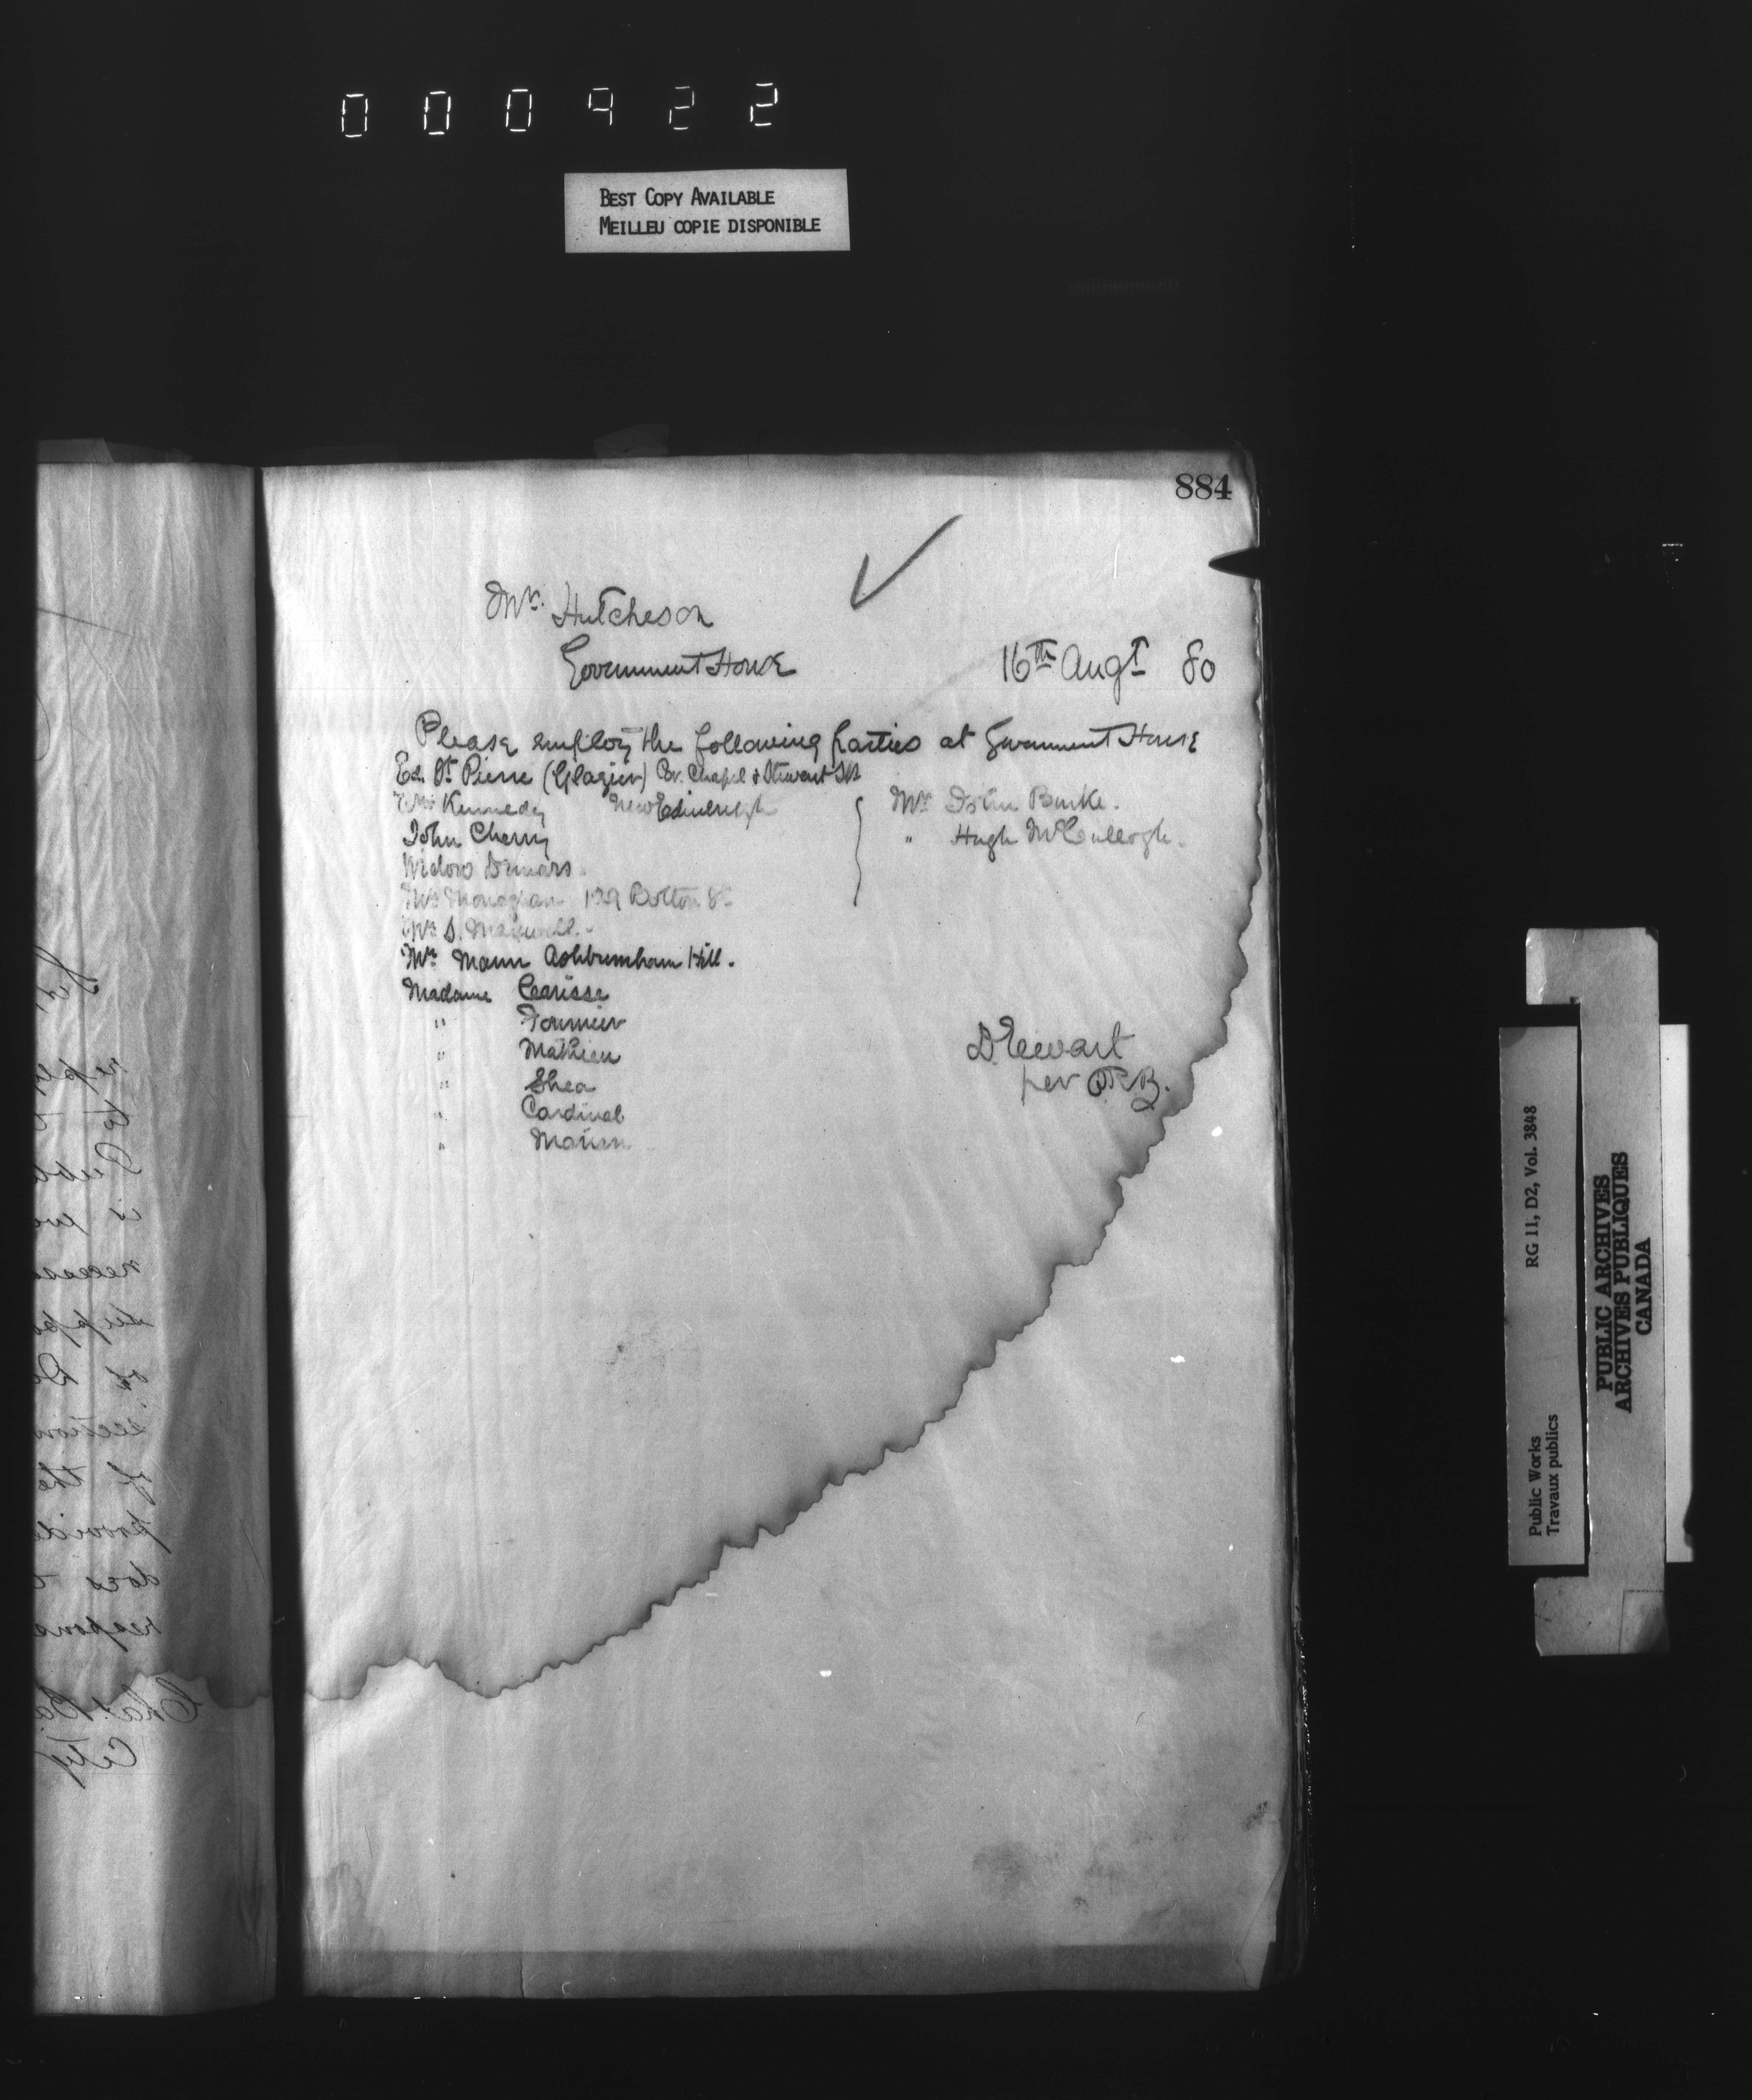 000922
BEST COPY AVAILABLE
MEILLEU COPIE DISPONIBLE
884
Mr. Hutcheson
Government House
16th Augt 80
Please employ the following parties at Government House
Ed. St Pierre (Glazier) Cor. Chapel & Stewart Sts
Kennedy New Edinburgh
John Cherry
Widow Demars.
Mrs Monaghan 129 Bolton St
Mr D. Maxwell.
Mr Mann Ashburnham Hill.
Madame Carisse
" Fournier
" Mathieu
" Shea
" Cardinal
"
Mr John Burke.
" Hugh McCullogh.
D. Ewart
per
RG 11, D2, Vol. 3848
Public Works
Travaux publics
PUBLIC ARCHIVES
ARCHIVES PUBLIQUES
CANADA